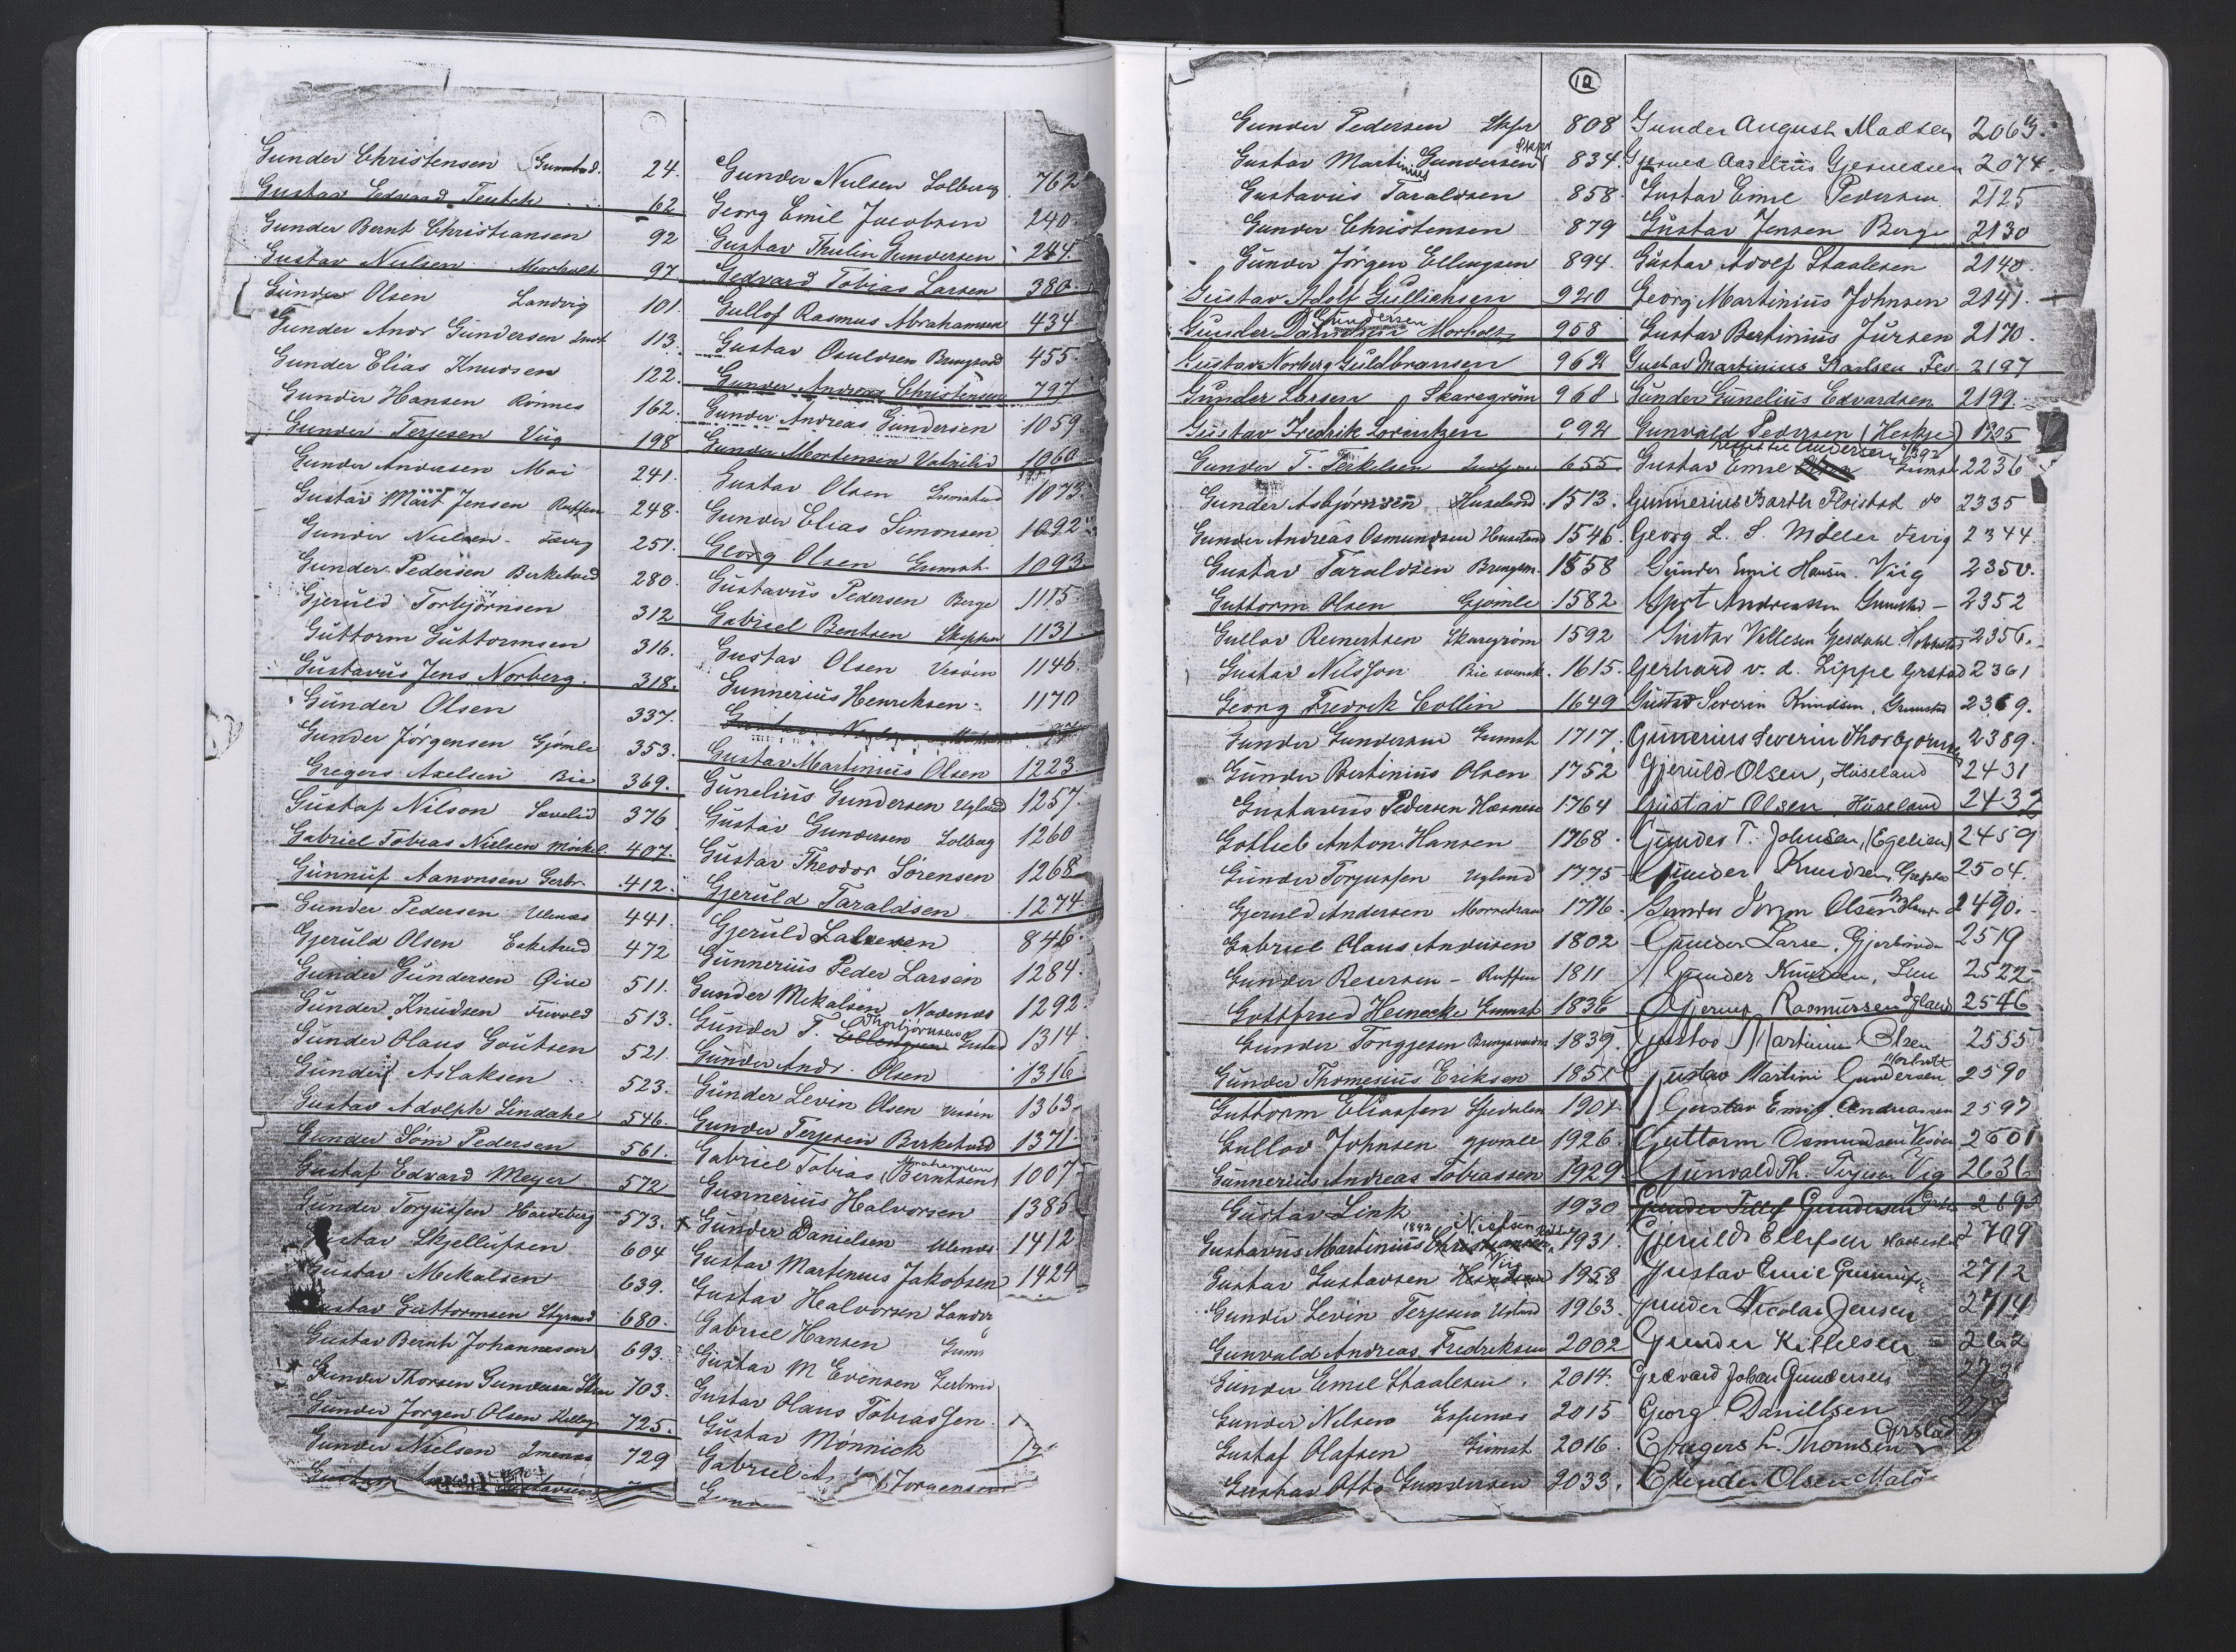 Gunder Christensen Grimstad. 24.
Gustav Edvard Teutch 62
Gunder Bernt Christiansen 92
Gustav Nielsen Morholt 97
Gunder Olsen Landvig 101.
Gunder Andr Gundersen 113.
Gunder Elias Knudsen 122.
Gunder Hansen Rønnes 162.
Gunder Terjesen Viig 198
Gunder Andersen Moi 241.
Gustav Mart Jensen 248.
Gunder Nielsen 251.
Gunder Pedersen Birketved 280.
Gjeruld Torbjörnsen 312
Guttorm Guttormsen 316.
Gustavus Jens Norberg. 318.
Gunder Olsen 337.
Gunder Jörgensen Gjömle 353.
Gregers Axelsen Bie 369.
Gustaf Nilson Sævelid 376
Gabriel Tobias Nielsen 407.
Gunnuf Aanonsen 412.
Gunder Pedersen Ulenæs 441.
Gjeruld Olsen Eeketved 472
Gunder Gundersen Qive 511.
Gunder Knudsen 513.
Gunder Olaus Goutsen 521.
Gunder Aslaksen 523.
Gustav Adolph Lindahl 546.
Gunder Söm Pedersen 561.
Gustaf Edvard Meyer 572
Gunder Torjussen 573.
Gustav Skjellufsen 604
Gustav Mekalsen 639.
Gustav Guttormsen 680.
Gustav Bernt Johannesen 693.
Gunder Thorsen 703.
Gunder Jorgen Olsen 725.
Gunder Nielsen 729
Gunder Nielsen Solberg 762
Georg Emil Jacobsen 240
Gustav Thulin Gundersen 244.
Gedvard Tobias Larsen 380
Gullof Rasmus Abrahamsen 434
Gustav Osuldsen Brungsard 455
Gunder Andreas Christensen 797
Gunder Andreas Gundersen 1059
Gunder Mortensen Vatnelid 1060
Gustav Olsen Grimstad 1073.
Gunder Elias Simonsen 1092
Georg Olsen Grimst. 1093
Gustavus Pedersen Berge 1115
Gabriel Bentsen Skipper 1131
Gustav Olsen Vesöen 1146.
Gunnerius Henriksen 1170
97
Gustav Martinius Olsen 1223
Gunelius Gundersen Ugland 1257.
Gustav Gundersen Solberg 1260
Gustav Theodor Sörensen 1268
Gjeruld Taraldsen 1274
Gjeruld 846.
Gunnerius Peder Larsen 1284.
Gunder Mekalsen Navenæs 1292.
Gunder T. Thorbjörnsen 1314
Gunder Andr. Olsen 1316
Gunder Levin Olsen Vesöen 1363
Gunder Terjesen Birketved 1371.
Gabriel Tobias (Berntsen) Abrahamsen 1007
Gunnerius Halvorsen 1385
x Gunder Danielsen Ulenæs 1412
Gustav Martinius Jakobsen 1424
Gustav Halvorsen Landv
Gabriel Hansen Grims
Gustav M Evensen
Gustav Olaus Tobiassen
Gustav Mönnick
Gabriel A Jorgensen
12
Gunder Pedersen Skper 808
Gustav Martinius Gundersen Skper 834.
Gustavus Taraldsen 858
Gunder Christensen 879
Gunder Jörgen Ellingsen 894.
Gustav Adolf Gullichsen 920
Gunder Gundersen Morholt 958
Gustav Norberg Guldbransen 962
Gunder Larsen Skaregröm 968
Gustav Fredrik Lorentzen 992
Gunder T. Terkelsen 655
Gunder Asbjörnsen Huseland 1513.
Gunder Andreas Osmundsen 1546.
Gustav Taraldsen 1558
Guttorm Olsen Gjömle 1582
Gullov Reinertsen Skaregröm 1592
Gustav Nilsson Bie svensk. 1615.
Georg Fredrik Collin 1649
Gunder Gundersen Grimst 1717.
Gunder Bertinius Olsen 1752
Gustavus Pedersen Hasnes 1764
Gotlieb Anton Hansen 1768.
Gunder Torjussen Ugland 1775
Gjeruld Andersen 1776
Gabriel Olaus Andersen 1802
Gunder Resersen 1811
Gottfried Heinecke Grimst 1836
Gunder Tongjesen 1839.
Gunder Thomesius Eriksen 1851
Guttorm Eliassen Spedalen 1901
Gullov Johnsen gjömle 1926.
Gunnerius Andreas Tobiassen 1929
Gustav Link 1930
Gustavus Martinius Nielsen 1892 1931.
Gustav Gustavsen Vig 1958
Gunder Levin Terjesen 1963.
Gunvald Andreas Fredriksen 2002
Gunder Emil Staalesen. 2014.
Gunder Nilsen Espenæs 2015
Gustaf Olafsen Grimst 2016.
Gustav Otto Gundersen 2033.
Gunder August Madsen 2063.
Gjeruld Aurelius Gjeruldsen 2074.
Gustav Emil Pedersen 2125
Gustav Jensen Berge 2130
Gustav Adolf Staalesen 2140.
Georg Martinius Johnsen 2141.
Gustav Bertinius Jursen 2170.
Gustav Martinius Karlsen Fev. 2197
Gunder Gunelius Edvardsen 2199.
Gunvald Pedersen (Heskje) 1905
Gustav Emil Andersen 1892 Grimst 2236
Gunnerius Barth Flöistad do 2335
Georg L. S. Møller Fevig 2344.
Gunder Emil Hansen. Viig 2350.
Gert Andreassen Grimstad 2352
Gustav Villesen Gjesdahl 2356.
Gerhard v. d. Lippe Grstad 2361
Gustav Severin Knudsen, Grimstad 2369.
Gunerius Severin Thorbjörnsen 2389.
Gjeruld Olsen, Huseland 2431
Gustav Olsen, Huseland 2432
Gunder T. Johnsen, (Egelien) 2459
Gunder Knudsen 2504.
Gunder Olsen 2490.
Gunder Larsen, 2519
Gunder Knudsen, 2522
Gjerup Rasmussen Igland 2546
Gustav Martinius Olsen 2555
Gustav Martini Gundersen Morholt 2590
Gustav Emil Andreassen 2597
Guttorm Osmundsen Vesöen 2601
Gunvald Th. Terjesen Vig 2636
Gunder Tellef Gundersen 2695
Gjeruld Ellefsen 2709
Gustav Emil 2712
Gunder Nicolai Jensen 2714
Gunder Kittelsen 262
Gedvard Johan Gundersen
Georg Daniellsen
Gragers L. Thomsen Grstad
Gunder Olsen